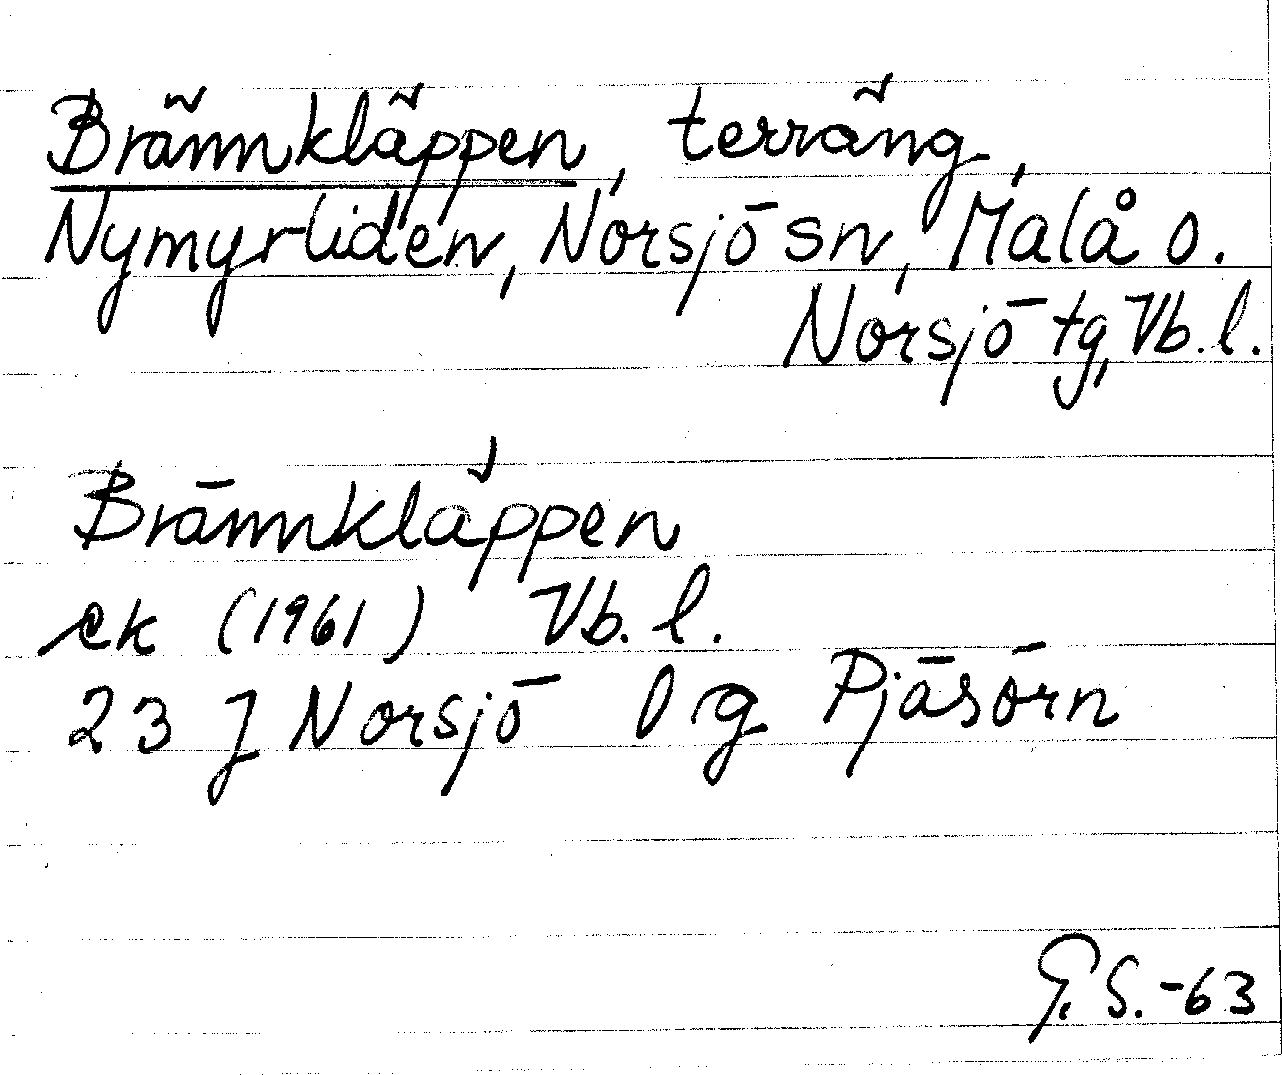 Brännkläppen, terräng,
Nymyrliden, Norsjö sn, Malå o.
Norsjö tg, Vb. l.
Brännkläppen
ek (1961) Vb. l.
23 J Norsjö 0 g Pjäsörn
G. S. -63